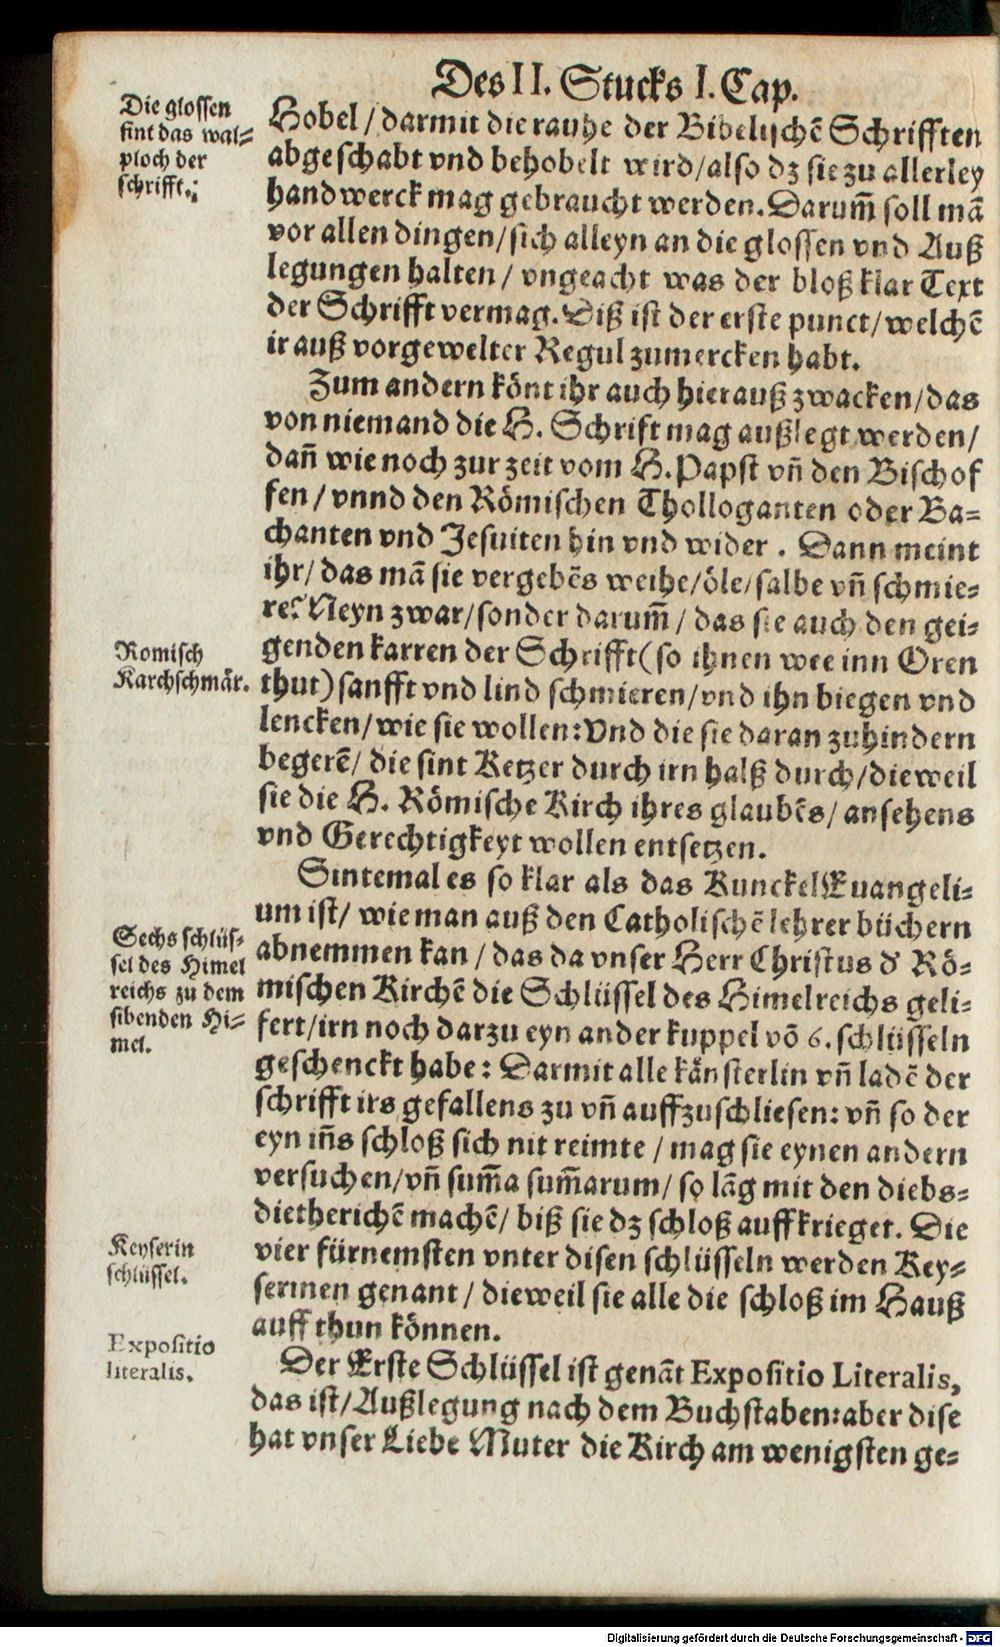 Des II. Stucks I. Cap.
Die glossen
sint das wal-
ploch der
schrifft.
Hobel / darmit die rauhe der Bibelischẽ Schrifften
abgeschabt vnd behobelt wird / also dz sie zu allerley
handwerck mag gebraucht werden. Darum̃ soll mã
vor allen dingen / sich alleyn an die glossen vnd Auß
legungen halten / vngeacht was der bloß klar Text
der Schrifft vermag. Diß ist der erste punct / welchẽ
ir auß vorgewelter Regul zumercken habt.
Zum andern könt ihr auch hierauß zwacken / das
von niemand die H. Schrift mag außlegt werden /
dañ wie noch zur zeit vom H. Papst vñ den Bischof
fen / vnnd den Römischen Tholloganten oder Ba-
chanten vnd Jesuiten hin vnd wider . Dann meint
ihr / das mã sie vergebẽs weihe / öle / salbe vñ schmie-
re? Neyn zwar / sonder darum̃ / das sie auch den gei-
Romisch
Karchschmär.
genden karren der Schrifft (so ihnen wee inn Oren
thut) sanfft vnd lind schmieren / vnd ihn biegen vnd
lencken / wie sie wollen: Vnd die sie daran zuhindern
begerẽ / die sint Ketzer durch irn halß durch / dieweil
sie die H. Römische Kirch ihres glaubẽs / ansehens
vnd Gerechtigkeyt wollen entsetzen.
Sintemal es so klar als das Kunckel Euangeli-
um ist / wie man auß den Catholischẽ lehrer büchern
Sechs schlüs-
sel des Himel
reichs zu dem
sibenden Hi-
mel.
abnemmen kan / das da vnser Herr Christus d' Rö-
mischen Kirchẽ die Schlüssel des Himelreichs geli-
fert / irn noch darzu eyn ander kuppel võ 6. schlüsseln
geschenckt habe: Darmit alle känsterlin vñ ladẽ der
schrifft irs gefallens zu vñ auffzuschliesen: vñ so der
eyn iñs schloß sich nit reimte / mag sie eynen andern
versuchen / vñ sum̃a sum̃arum / so lãg mit den diebs-
dietherichẽ machẽ / biß sie dz schloß auffkrieget. Die
Keyserin
schlüssel.
vier fürnemsten vnter disen schlüsseln werden Key-
serinnen genant / dieweil sie alle die schloß im Hauß
auff thun können.
Expositio
literalis.
Der Erste Schlüssel ist genãt Expositio Literalis,
das ist / Außlegung nach dem Buchstaben: aber dise
hat vnser Liebe Muter die Kirch am wenigsten ge-
Digitalisierung gefördert durch die Deutsche Forschungsgemeinschaft - DFG